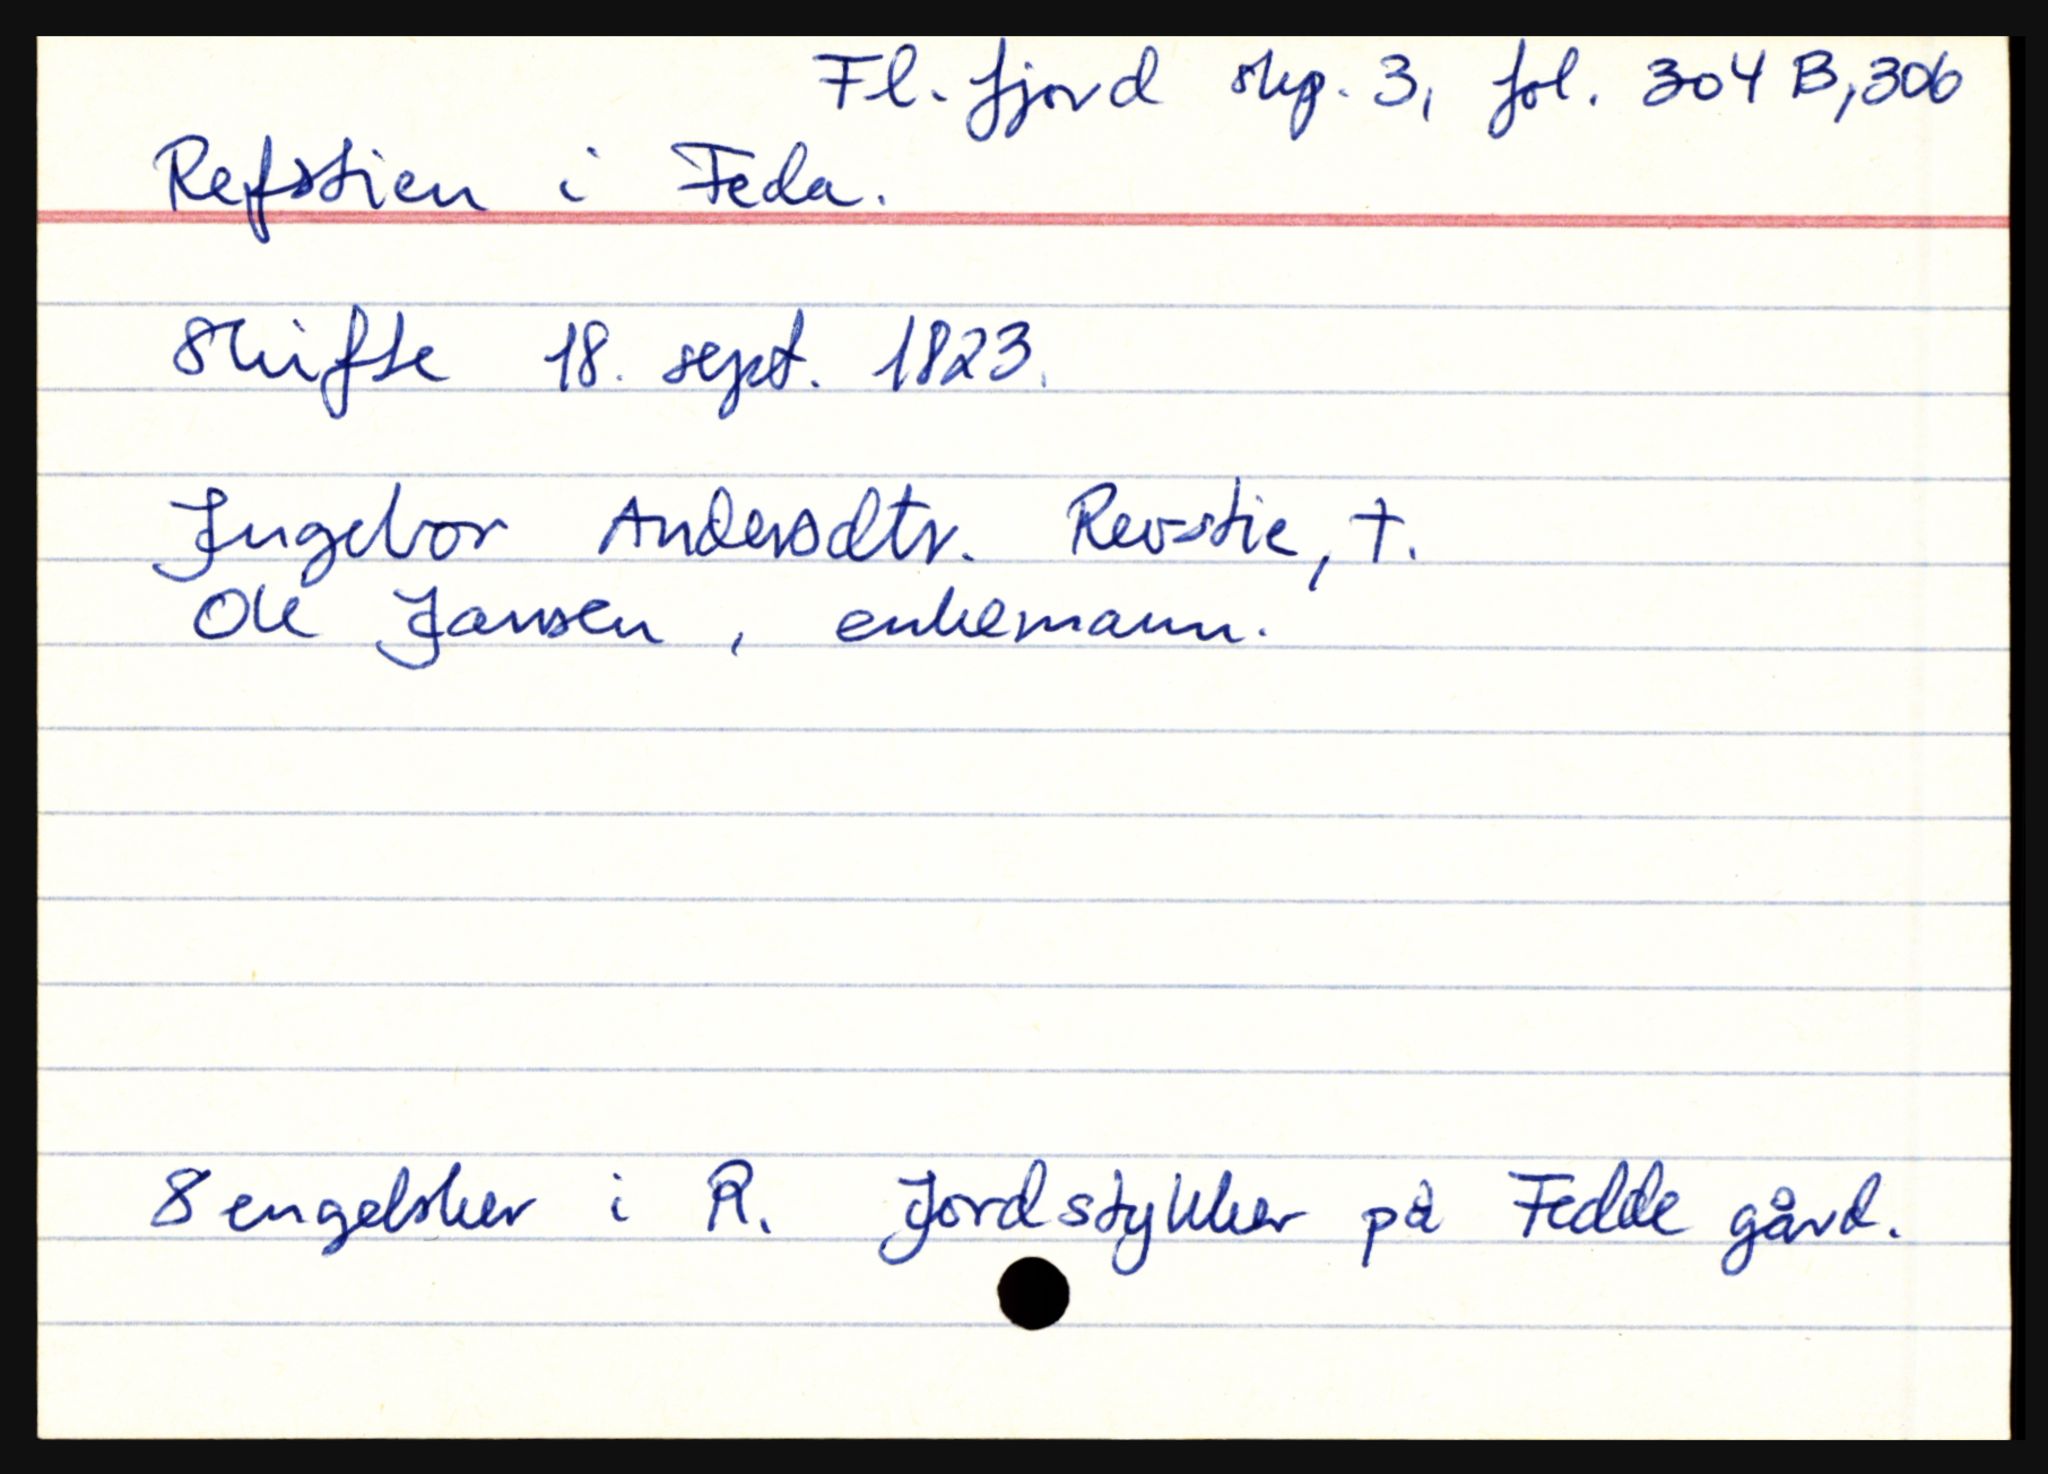 Fl. fjord skp. 3, fol. 304 B, 306
Refstien i Feda.
Skifte 18. sept. 1823.
Ingebor Andersdtr. Revstie, †.
Ole Jansen, enkemann.
8 engelsker i R. Jordstykker på Fedde gård.